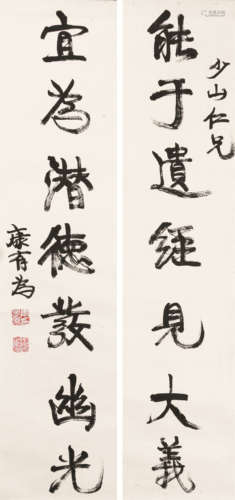 能于遺經見大義
少山仁兄
宜為潜德發幽光
康有為